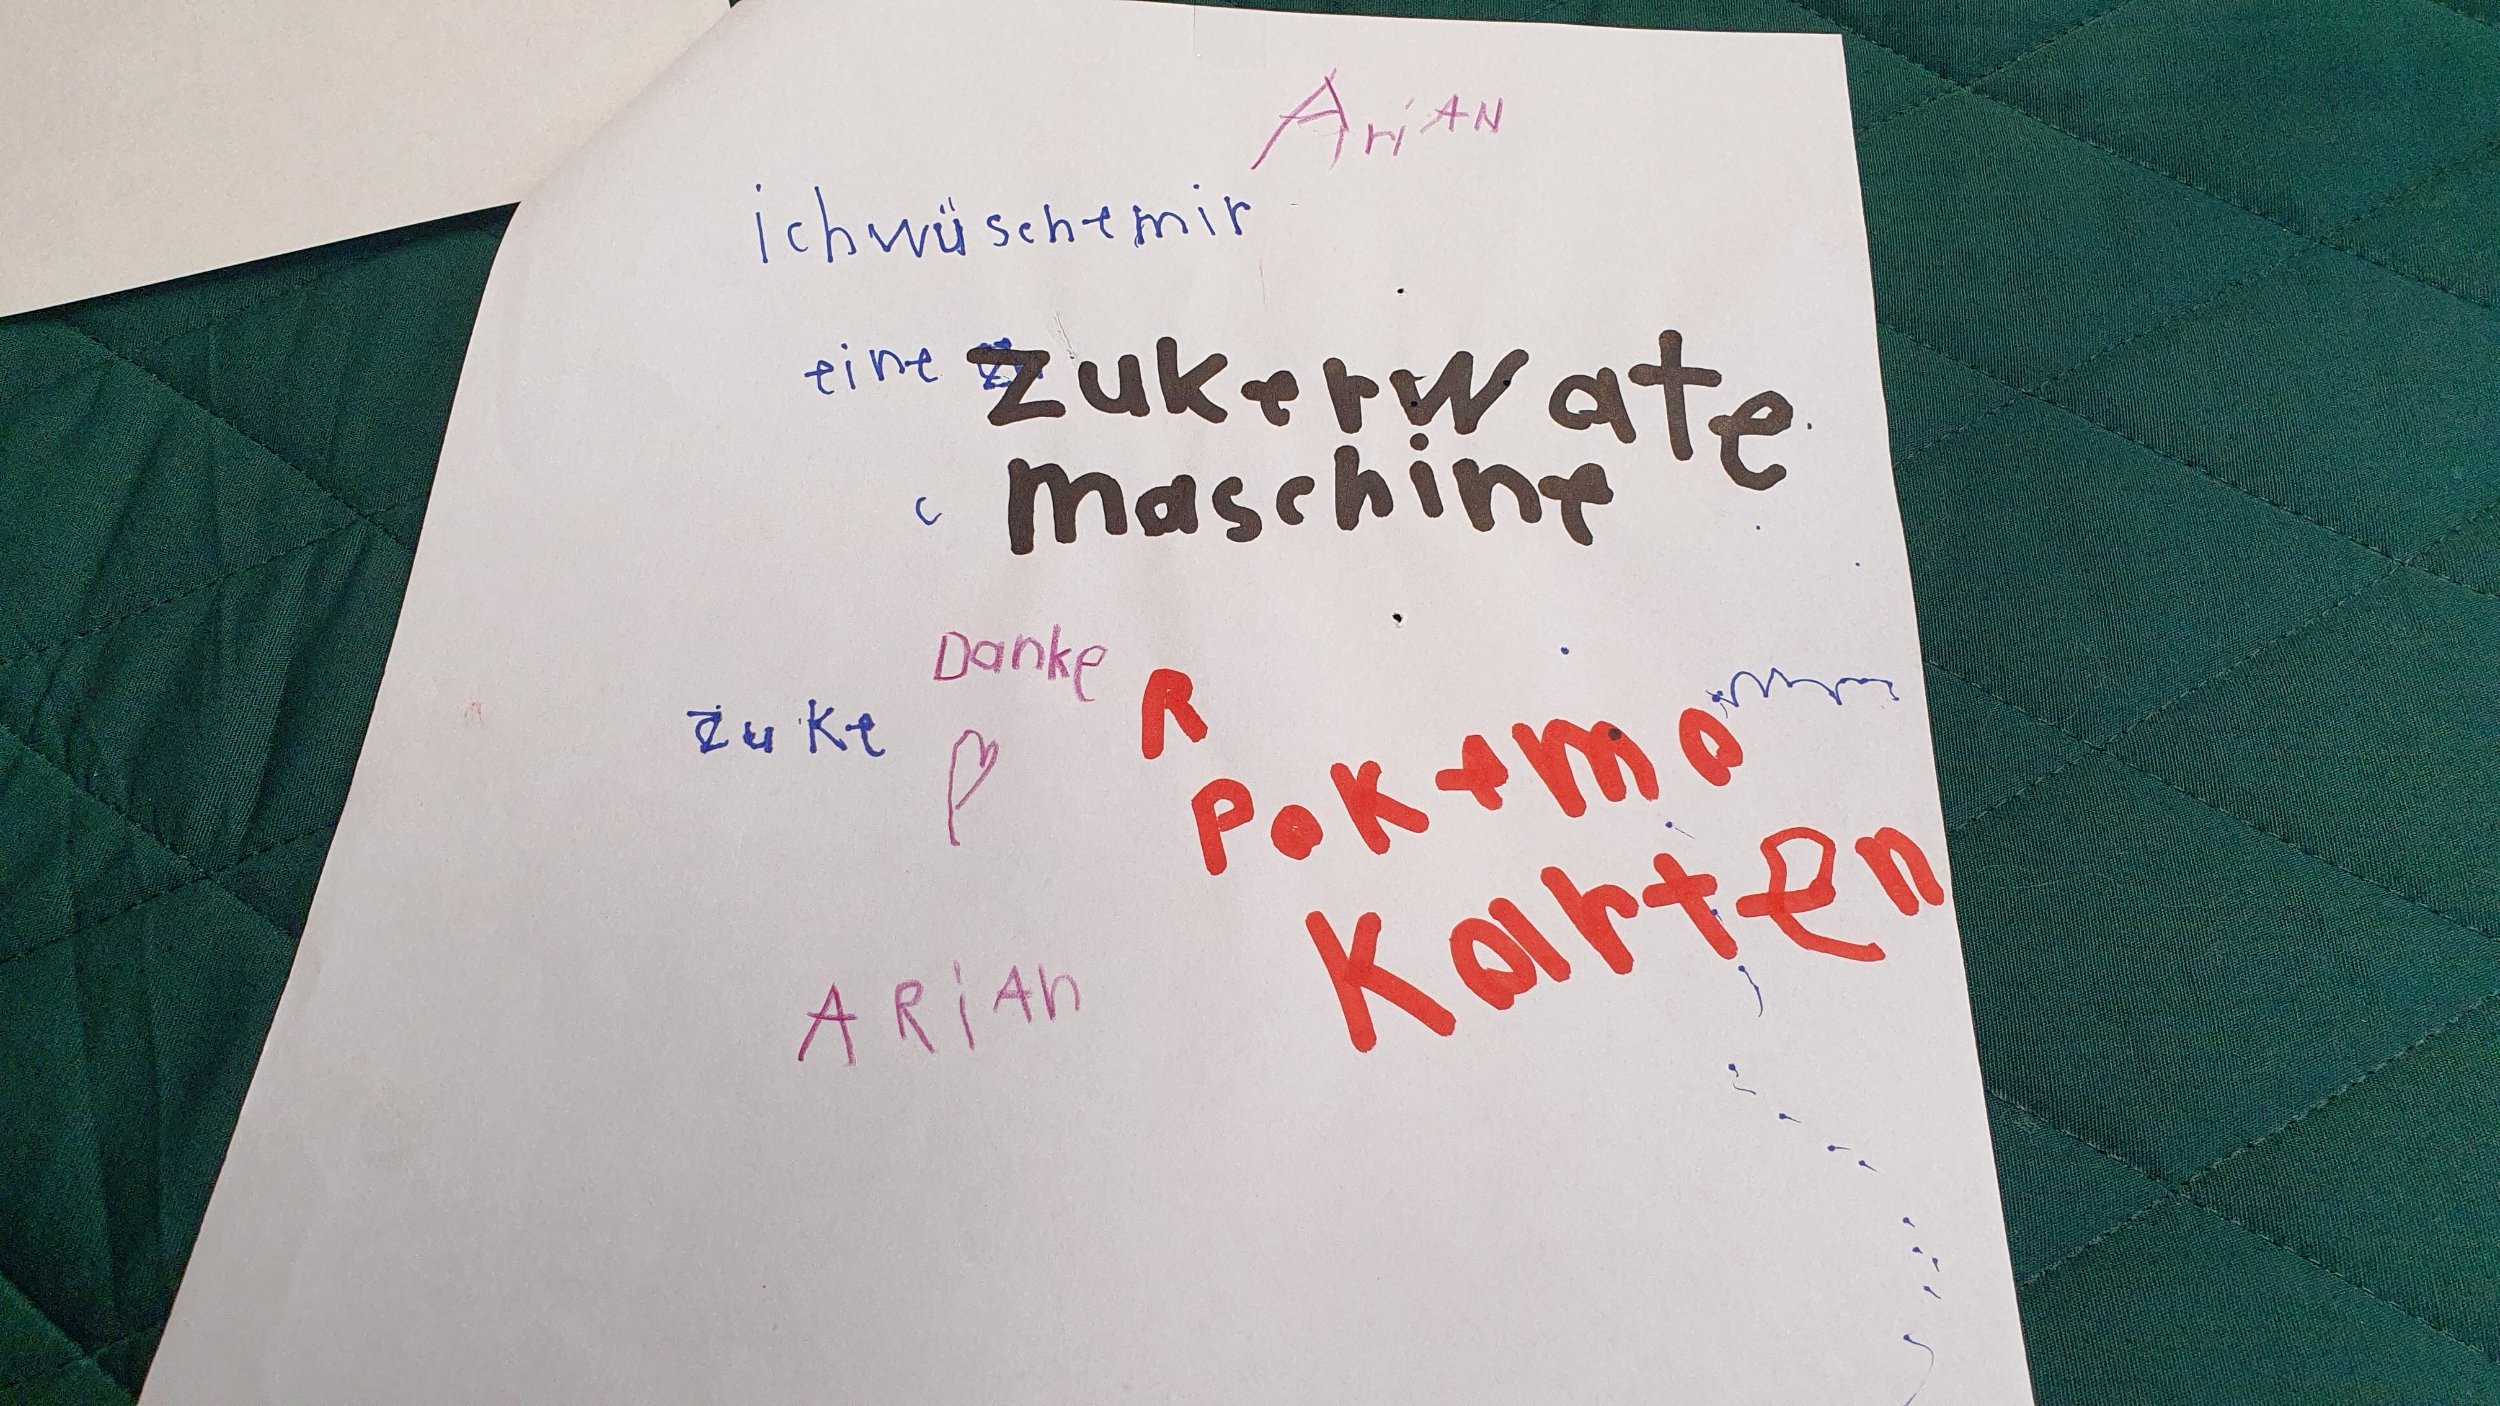 AriAN
ichwüschemir
eine zukerwate
maschine
Danke
zuke
R
Pokemo
Karten
ARiAn